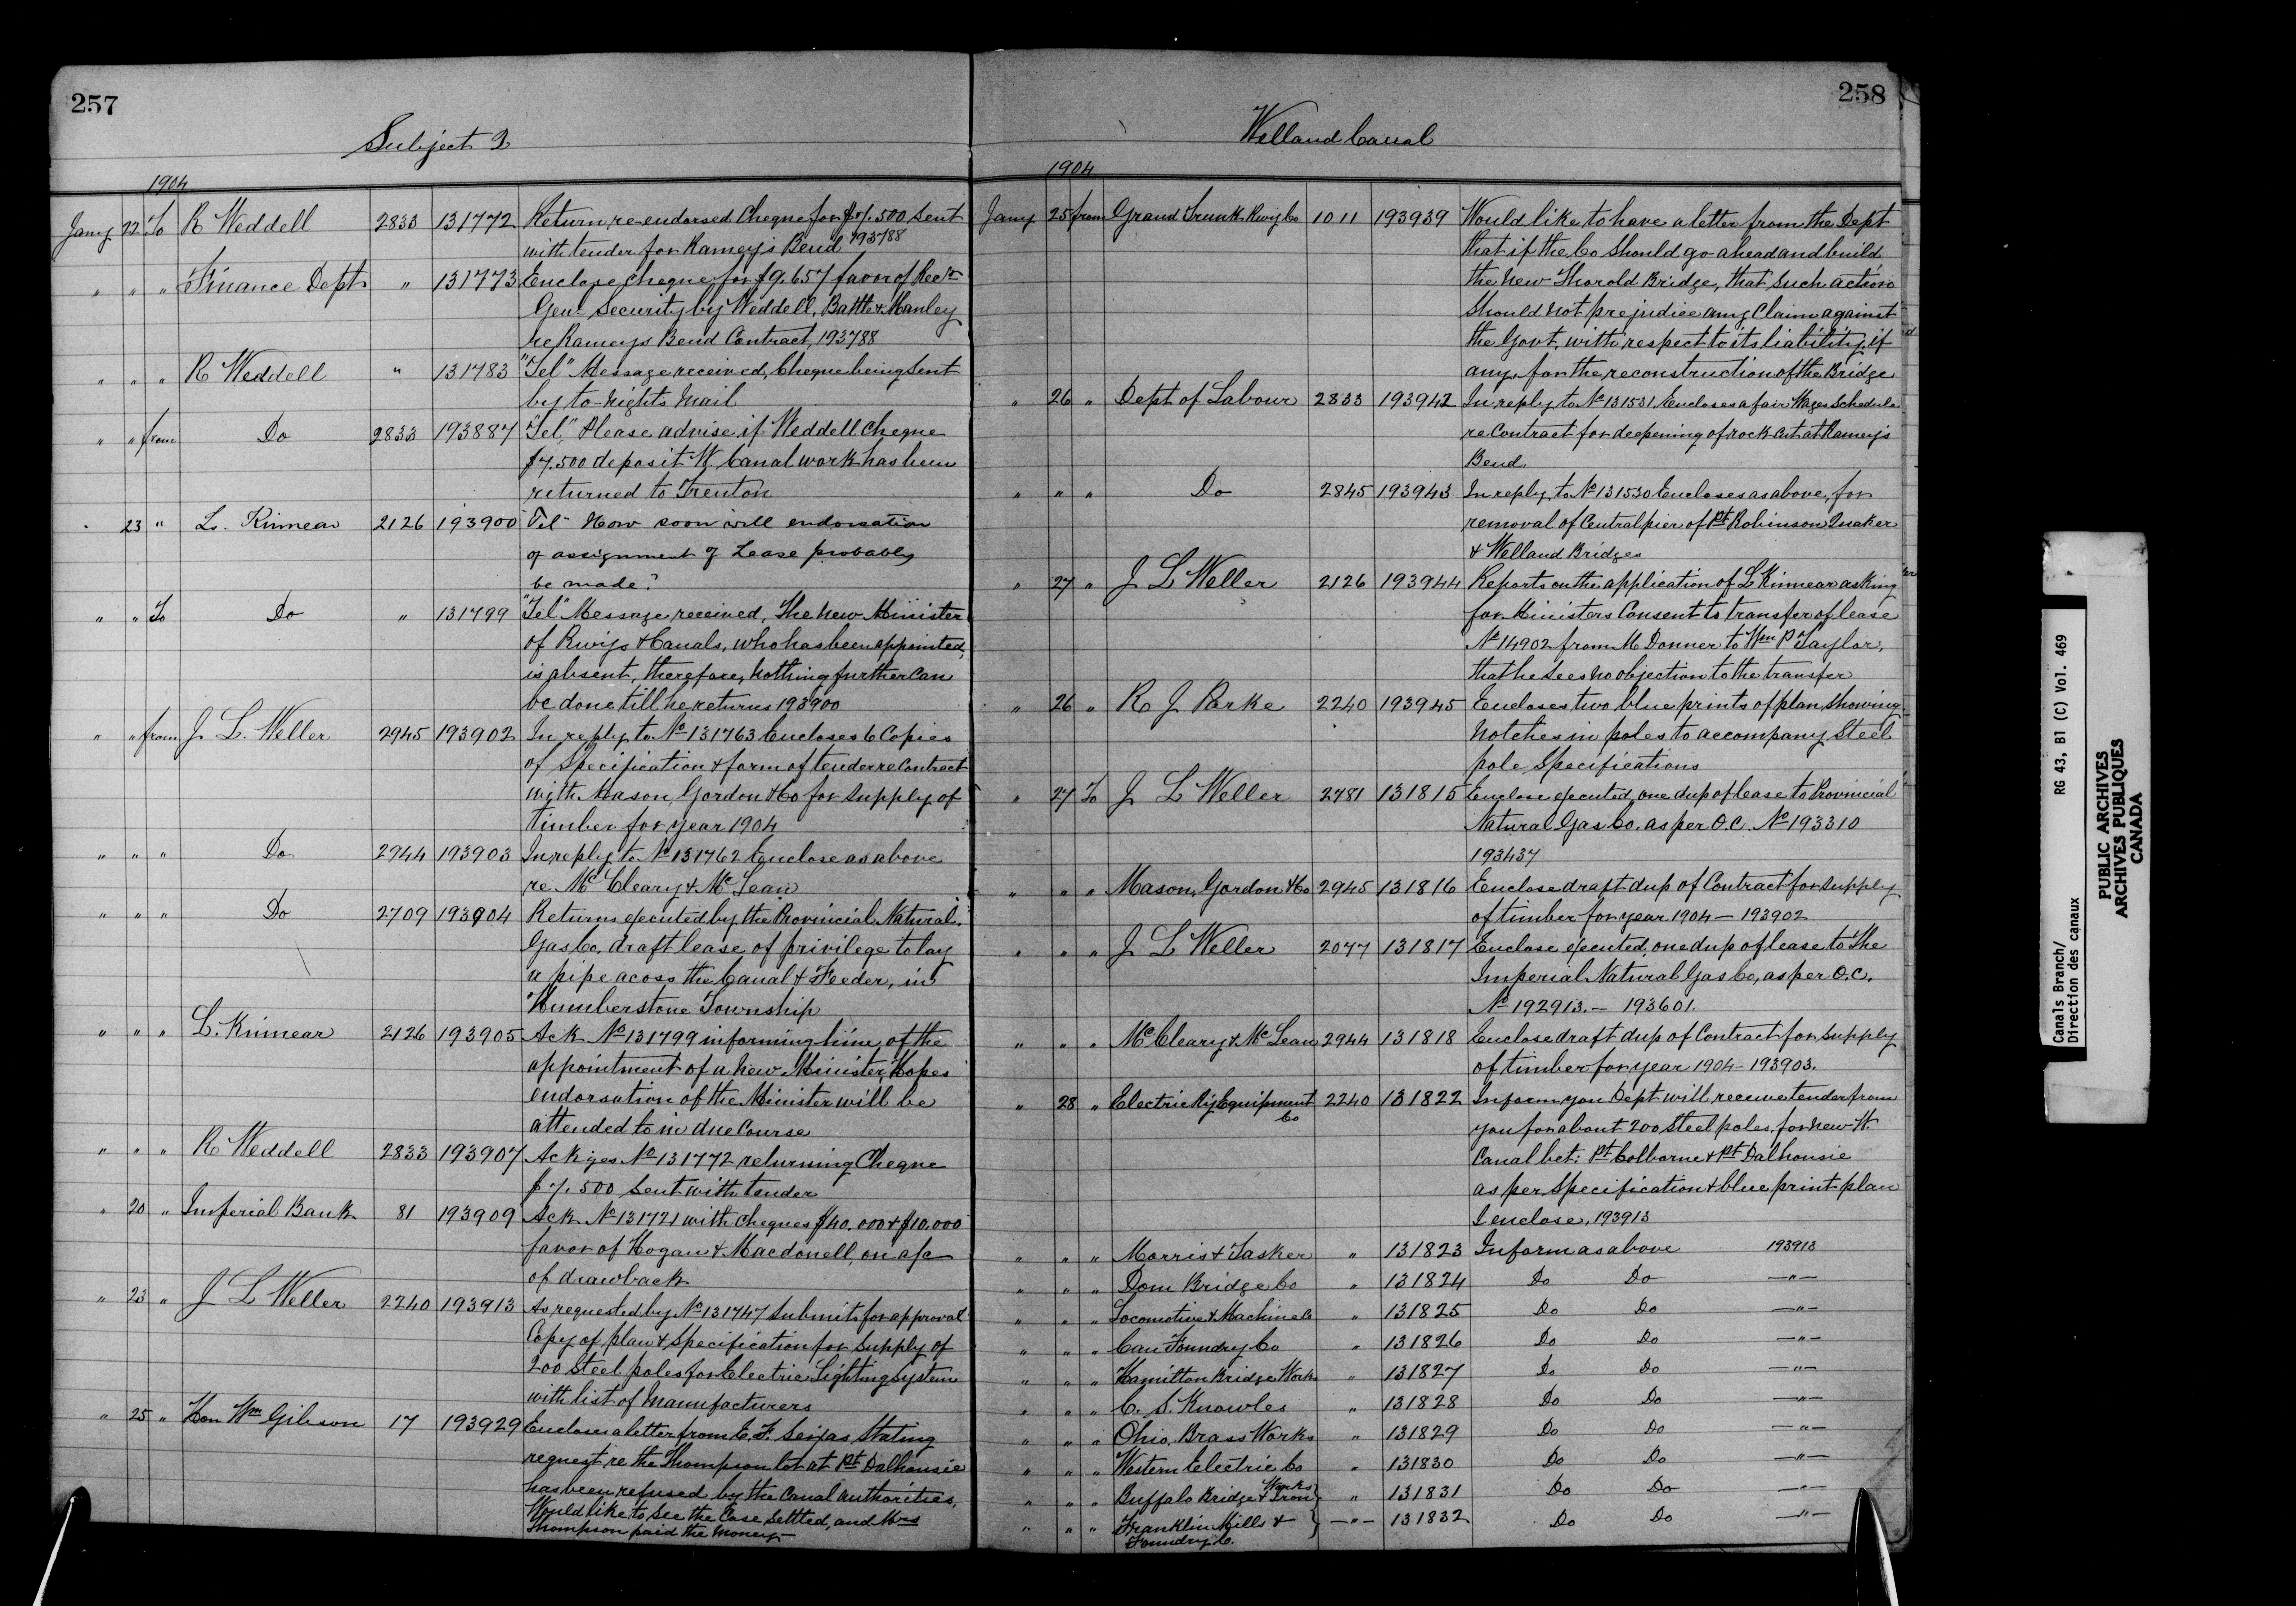 257
Subject 2
1904
Jany 22 To R Weddell 2833 131772 Return re-endorsed Cheque for $7.500 sent
with tender for Rameys Bend 193788
" " " Finance Dept " 131773 Enclose cheque for $9.657 favor of Recr
Genl Security by Weddell, Battle & Manley
re Rameys Bend Contract, 193788
" " " R Weddell " 131783 "Tel" Message received, Cheque being sent
by to-nights mail
" " from Do 2833 193887 "Tel" Please advise if Weddell Cheque
$7.500 deposit W. Canal work has been
returned to Trenton
" 23 " L. Kinnear 2126 193900 Tel- How soon will endorsation
of assignment of Lease probably
be made?
" " To Do " 131799 "Tel" Message received, The new Minister
of Rwys & Canals, who has been appointed,
is absent, therefore, nothing further can
be done till he returns 193900
" " from J. L. Weller 2945 193902 In reply to No 131763 Encloses 6 Copies
of Specification & form of tender re Contract
with Mason, Gordon & Co for supply of
timber for year 1904
" " " Do 2944 193903 In reply to No 131762 Enclose as above
re McCleary & McLean
" " " Do 2709 193904 Returns executed by the Provincial Natural
Gas Co, draft lease of privilege to lay
a pipe acoss the Canal & Feeder, in
Humberstone Township
" " " L. Kinnear 2126 193905 Ack No 131799 informing him, of the
appointment of a new Minister, Hopes
endorsation of the Minister will be
attended to in due Course
" " " R Weddell 2833 193907 Ackges No 131772 returning Cheque
$7.500 sent with tender
" 20 " Imperial Bank 81 193909 Ack No 131721 with cheques $40.000 & $10.000
favor of Hogan & Macdonell, on a/c
of drawback
" 23 " J L Weller 2240 193913 As requested by No 131747 submits for approval
Copy of plan & Specification for supply of
200 steel poles for Electric Lighting System
with list of manufacturers
" 25 " Hon Wm Gibson 17 193929 Encloses a letter from E. F. Seixas, stating
request re the Thompson lot at Pt Dalhousie
has been refused by the Canal authorities,
Would like to see the Case settled, and Mrs
Thompson paid the money
258
Welland Canal
1904
Jany 25 from Grand Trunk Rwy Co 1011 193939 Would like to have a letter from the Dept
that if the Co should go ahead and build
the new Thorold Bridge, that such action
should not prejudice any Claim against
the Govt, with respect to its liability, if
any, for the reconstruction of the Bridge
" 26 " Dept of Labour 2833 193942 In reply to No 131531 Encloses a fair Wages Schedule
re Contract for deepening of rock cut at Rameys
Bend
" " " Do 2845 193943 In reply to No 131530 Encloses as above, for
removal of Central pier of Pt Robinson Quaker
& Welland Bridges
" 27 " J L Weller 2126 193944 Reports on the application of L Kinnear asking
for Ministers Consent to transfer of lease
No 14902 from M Donner to Wm P Taylor,
that he sees no objection to the transfer
" 26 " R J Parke 2240 193945 Encloses two blue prints of plan, showing
notches in poles to accompany Steel
pole Specifications
" 27 To J L Weller 2781 131815 Enclose executed, one dup of lease to Provincial
Natural Gas Co. as per O.C. No 193310
193437
" " " Mason, Gordon & Co 2945 131816 Enclose draft dup of Contract for supply
of timber for year 1904 – 193902
" " " J L Weller 2077 131817 Enclose executed, one dup of lease to the
Imperial Natural Gas Co, as per O.C.
No 192913. – 193601.
" " " McCleary & McLean 2944 131818 Enclose draft dup of Contract for supply
of timber for year 1904 – 193903.
" 28 " Electric Ry Equipment Co 2240 131822 Inform you Dept will receive tender from
you for about 200 steel poles, for new W.
Canal bet: Pt Colborne & Pt Dalhousie
as per specification & blue print plan
I enclose, 193913
" " " Morris & Tasker " 131823 Inform as above 193913
" " " Dom Bridge Co " 131824 Do Do —"—
" " " Locomotive & Machine Co " 131825 Do Do —"—
" " " Can Foundry Co " 131826 Do Do —"—
" " " Hamilton Bridge Works " 131827 Do Do —"—
" " " C. S. Knowles " 131828 Do Do —"—
" " " Ohio Brass Works " 131829 Do Do —"—
" " " Western Electric Co " 131830 Do Do —"—
" " " Buffalo Bridge & Iron Works " 131831 Do Do —"—
" " " Franklin Mills & —"— 131832 Do Do —"—
Foundry Co.
Canals Branch/ RG 43, B1 (C) Vol. 469
Direction des canaux
PUBLIC ARCHIVES
ARCHIVES PUBLIQUES
CANADA